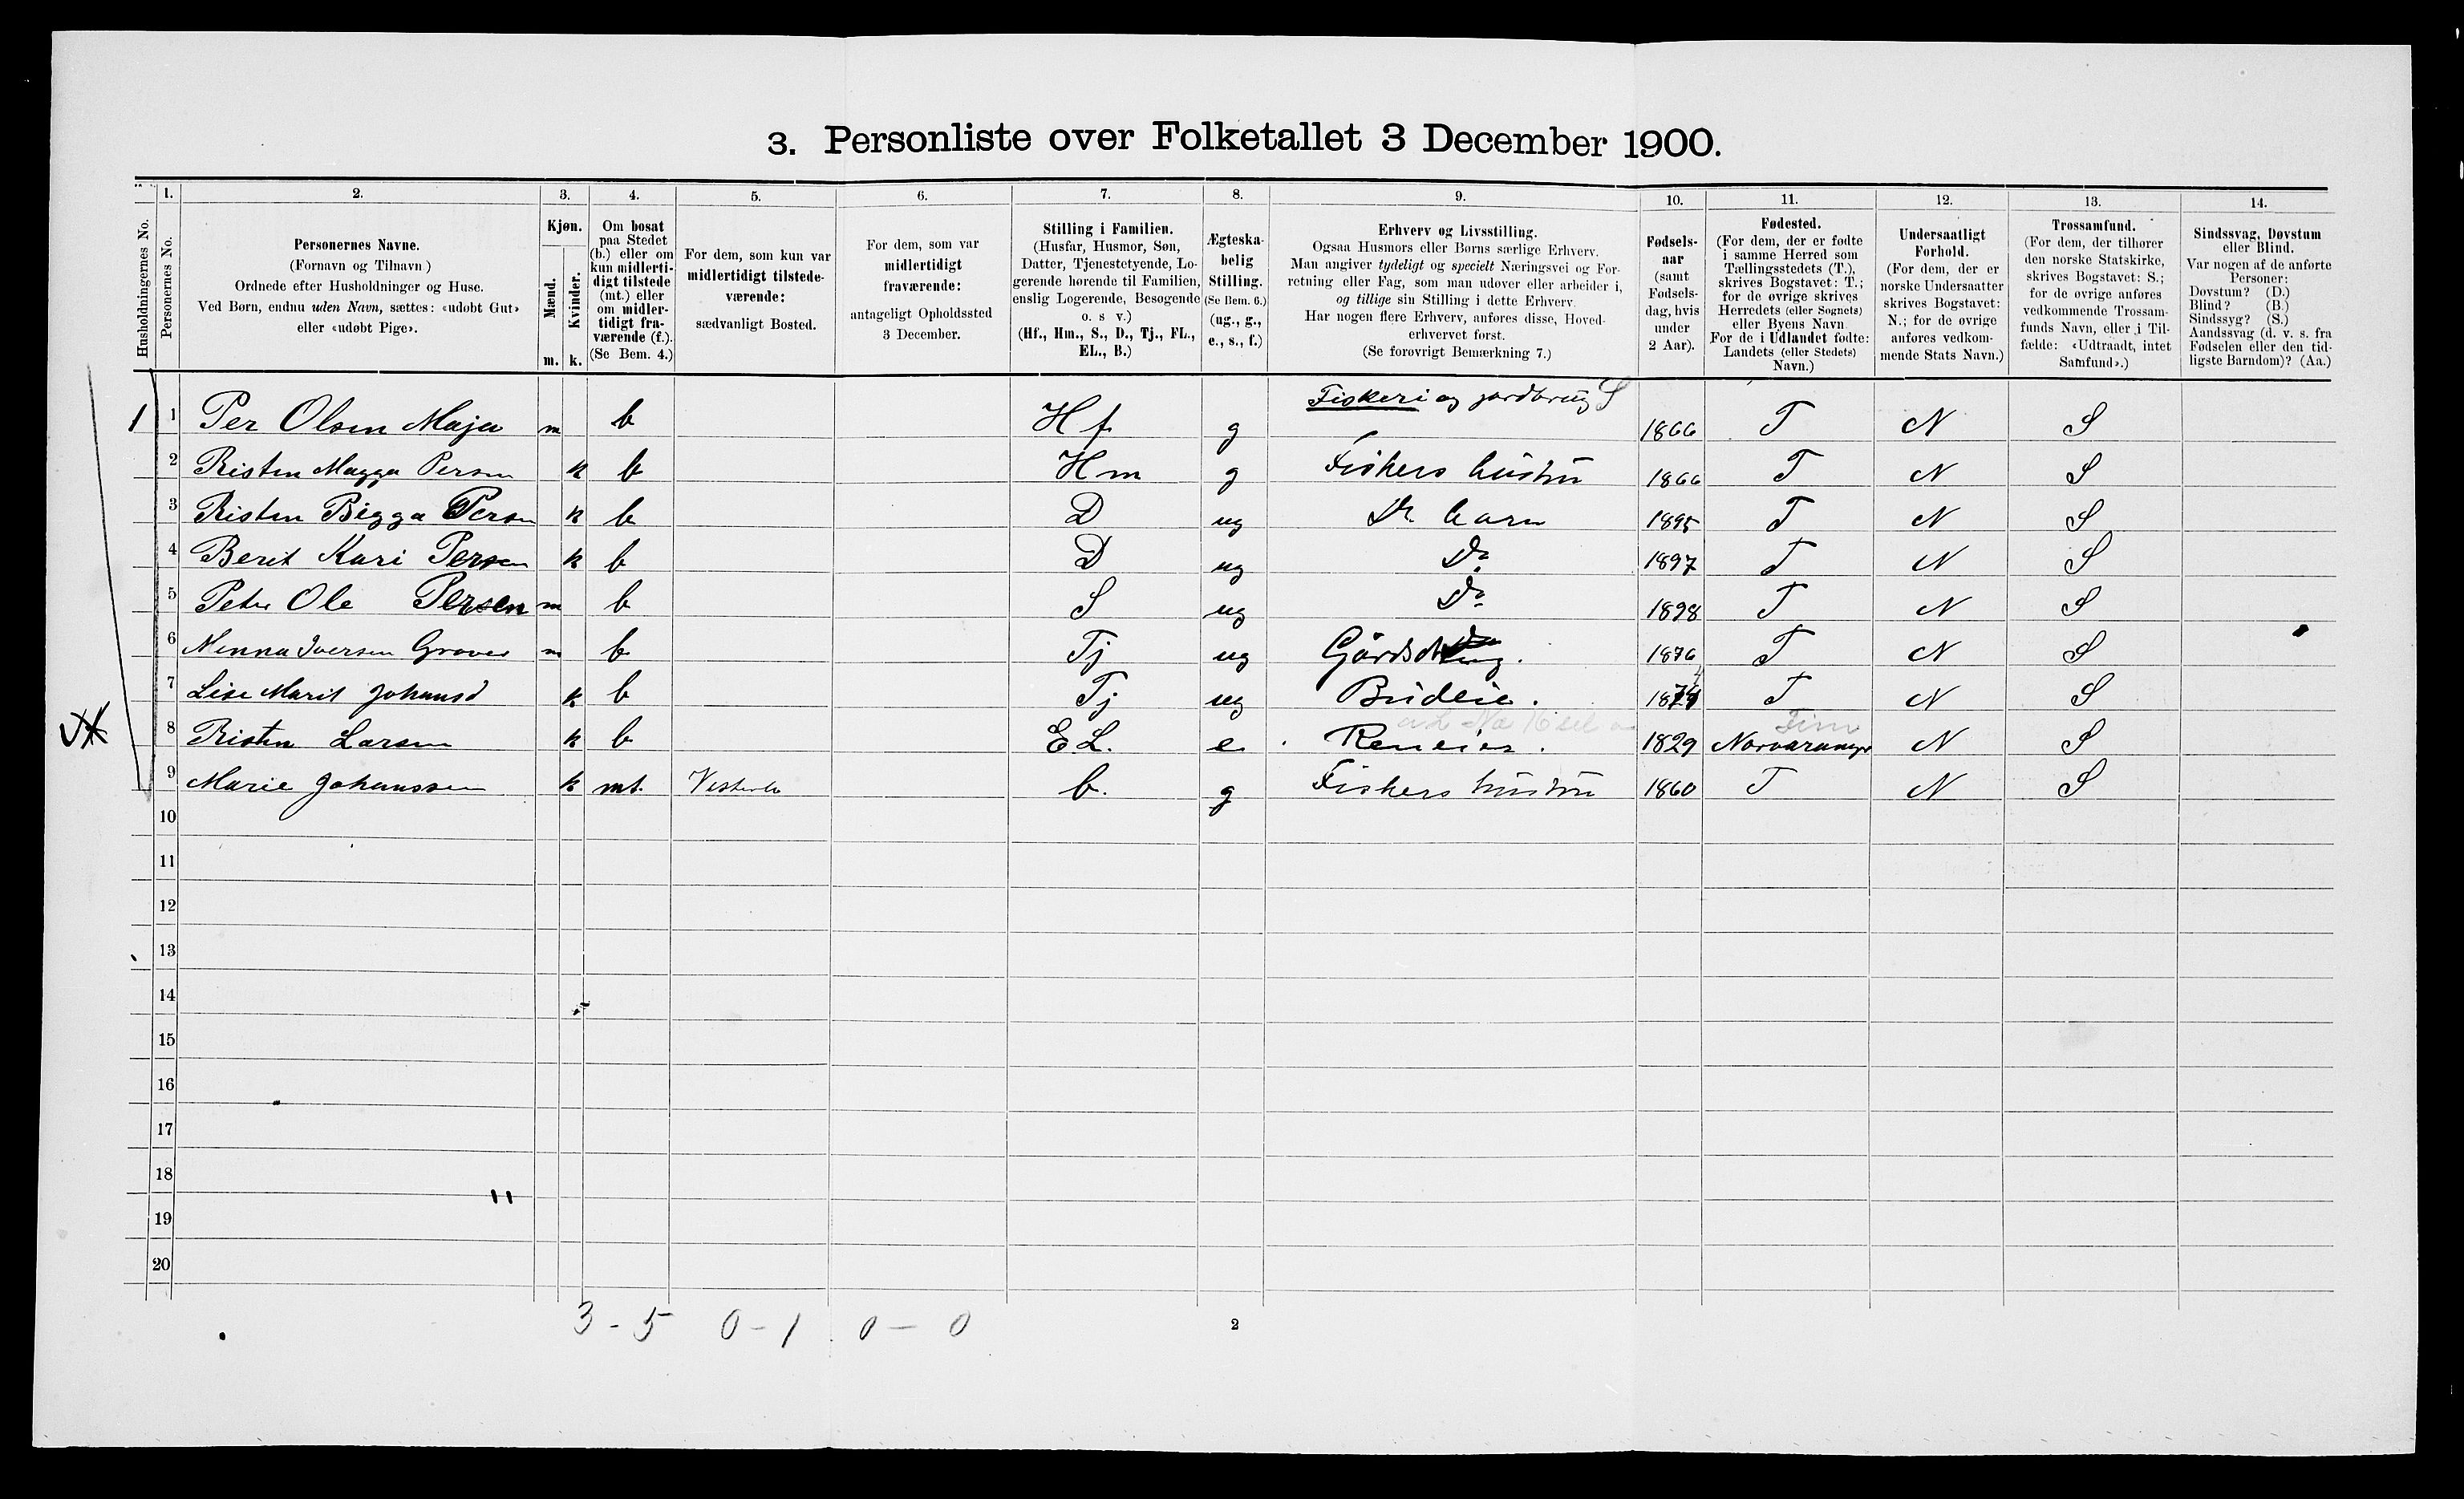 3. Personliste over Folketallet 3 December 1900.
1. 2. 3. 4. 5. 6. 7. 8. 9. 10. 11. 12. 13. 14.
Husholdningernes No.
Personernes No.
Personernes Navne.
(Fornavn og Tilnavn)
Ordnede efter Husholdninger og Huse.
Ved Børn, endnu uden Navn, sættes: «udøbt Gut»
eller «udøbt Pige».
Kjøn.
Mænd.
Kvinder.
m. k.
Om bosat
paa Stedet
(b.) eller om
kun midlerti-
digt tilstede
(mt.) eller
om midler-
tidigt fra-
værende (f.).
(Se Bem. 4.)
For dem, som kun var
midlertidigt tilstede-
værende:
sædvanligt Bosted.
For dem, som var
midlertidigt
fraværende:
antageligt Opholdssted
3 December.
Stilling i Familien.
(Husfar, Husmor, Søn,
Datter, Tjenestetyende, Lo-
gerende hørende til Familien,
enslig Logerende, Besøgende
o. s v.)
(Hf., Hm., S., D., Tj., FL.,
EL., B.)
Ægteska-
belig
Stilling.
(Se Bem. 6.)
(ug., g.,
e., s., f.)
Erhverv og Livsstilling.
Ogsaa Husmors eller Børns særlige Erhverv.
Man angiver tydeligt og specielt Næringsvei og For-
retning eller Fag, som man udøver eller arbeider i,
og tillige sin Stilling i dette Erhverv.
Har nogen flere Erhverv, anføres disse, Hoved-
erhvervet først.
(Se forøvrigt Bemærkning 7.)
Fødsels-
aar
(samt
Fødsels-
dag, hvis
under
2 Aar).
Fødested.
(For dem, der er fødte
i samme Herred som
Tællingsstedets (T.),
skrives Bogstavet: T.;
for de øvrige skrives
Herredets (eller Sognets)
eller Byens Navn
For de i Udlandet fødte:
Landets (eller Stedets)
Navn.)
Undersaatligt
Forhold.
(For dem, der er
norske Undersaatter
skrives Bogstavet:
N.; for de øvrige
anføres vedkom-
mende Stats Navn.)
Trossamfund.
(For dem, der tilhører
den norske Statskirke,
skrives Bogstavet: S.;
for de øvrige anføres
vedkommende Trossam-
funds Navn, eller i Til-
fælde: «Udtraadt, intet
Samfund».)
Sindssvag, Døvstum
eller Blind.
Var nogen af de anførte
Personer:
Døvstum? (D.)
Blind? (B.)
Sindssyg? (S.)
Aandssvag (d. v. s. fra
Fødselen eller den tid-
ligste Barndom)? (Aa.)
Fiskeri og jordbrug S
1 1 Per Olsen Maja m b Hf g 1866 T N S
2 Risten Magga Persen k b Hm g Fiskers hustru 1866 T N S
3 Risten Bigga Persen k b D ug Dr. barn 1895 T N S
4 Berit Kari Persen k b D ug Do 1897 T N S
5 Peter Ole Persen m b S ug Do 1898 T N S
6 Nenna Iversen m b Tj ug 1876 T N S
7 Lise Marit Johansd k b Tj ug Budeie. T N S
8 Risten Larsen k b EL. e Reneier. 1829 N S
9 Marie Johanssen k mt. b. g Fiskers hustru 1860 T N S
10
11
12
13
14
15
16
17
18
19
20
3 - 5 0 - 1 0 - 0
2